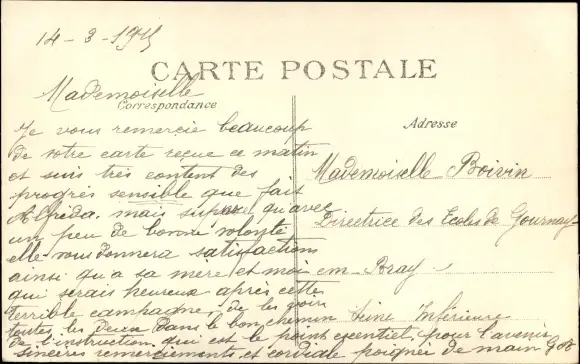 14 - 3 - 1915
CARTE POSTALE
Mademoiselle
Correspondance
Je vous remercie beaucoup
de votre carte reçue ce matin
et suis très content des
progrès sensible que fait
mais qu'avec
un peu de bonne volonté
elle vous donnera satisfactions
ainsi qu'a sa mere et moi
qui serais heureux après cette
terrible campagne, de les voir
toutes les deux dans le bon chemin
de l'instruction qui est le point escentiel pour l'avenir
sincères remerciements et cordiale poignée de main
Adresse
Mademoiselle Boivin
Directrice des Ecoles de Gournay
em - Bray
Seine Inférieure